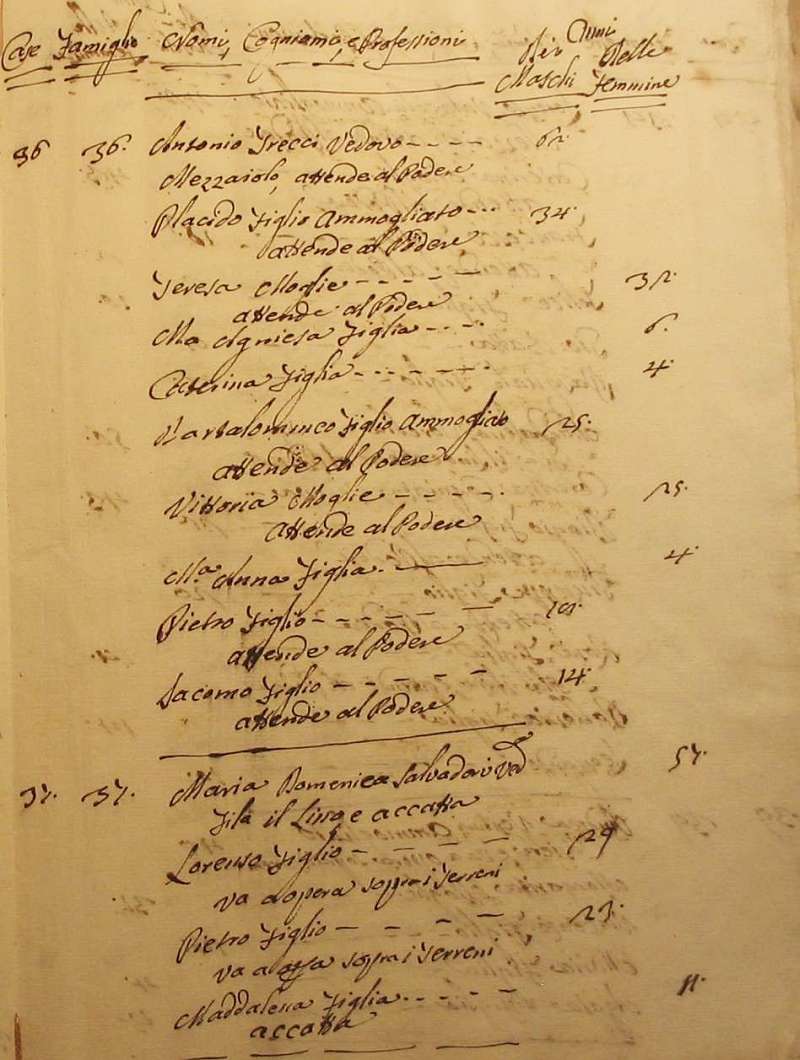 Case Famiglie Nomi, Cognomi, e Professioni Anni
Dei Maschi Delle Femmine
36 36. Antonio Trecci Vedovo
Mezzaiolo, attende al Podere
Placido figlio Ammogliato 34.
attende al Podere
Teresa Moglie
attende al Podere
Ma Agniesa figlia 6.
Caterina figlia 4.
Bartolommeo figlio Ammogliato 25.
attende al Podere
Vittoria Moglie 25.
attende al Podere
Ma. Anna figlia 4.
Pietro figlio
attende al Podere
Iacomo figlio 14.
attende al Podere
37. 37. Maria Domenica Salvadori Ved 57.
fila il Lino e accatta
Lorenso figlio 29
va a opera sopra i Terreni
Pietro figlio 23.
va a opra sopra i Terreni
Maddalena figlia 11.
accatta